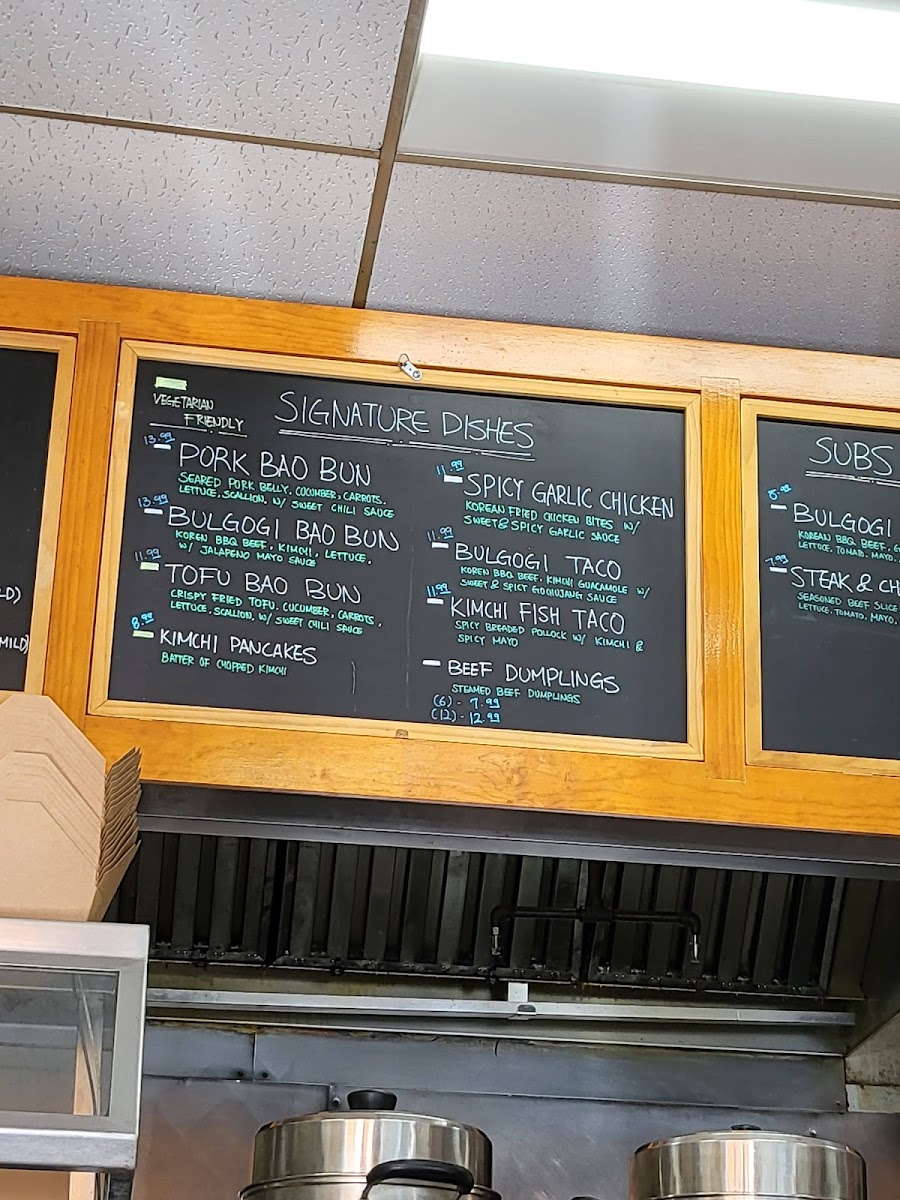 VEGETARIAN
FRIENDLY
SIGNATURE DISHES
13.99
PORK BAO BUN
SEARED PORK BELLY, CUCUMBER, CARROTS,
LETTUCE, SCALLION, W/ SWEET CHILI SAUCE
13.99
BULGOGI BAO BUN
KOREN BBQ BEEF, KIMCHI, LETTUCE,
W/ JALAPENO MAYO SAUCE
11.99
TOFU BAO BUN
CRISPY FRIED TOFU, CUCUMBER, CARROTS,
LETTUCE, SCALLION, W/ SWEET CHILI SAUCE
8.99
KIMCHI PANCAKES
BATTER OF CHOPPED KIMCHI
11.99
SPICY GARLIC CHICKEN
KOREAN FRIED CHICKEN BITES W/
SWEET & SPICY GARLIC SAUCE
11.99
BULGOGI TACO
KOREN BBQ BEEF, KIMCHI GUACAMOLE W/
SWEET & SPICY GOCHUJANG SAUCE
11.99
KIMCHI FISH TACO
SPICY BREADED POLLOCK W/ KIMCHI &
SPICY MAYO
BEEF DUMPLINGS
STEAMED BEEF DUMPLINGS
(6) - 7.99
(12) - 12.99
SUBS
BULGOGI
KOREAN BBQ BEEF, G
LETTUCE, TOMATO, MAYO,
7.99
STEAK & CH
SEASONED BEEF SLICE
LETTUCE, TOMATO, MAYO,
LD)
MILD)